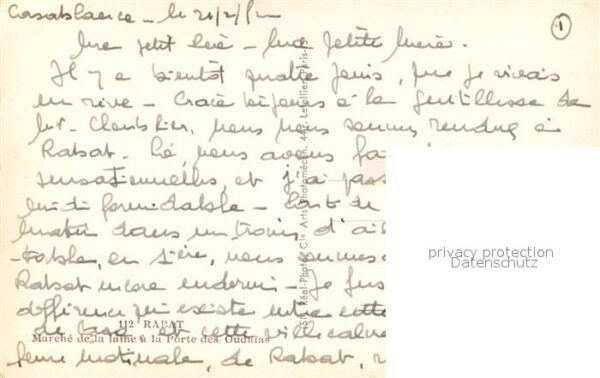 Casablanca - le 21/2/52
①
Ma petit Mère.
Il y a bientôt quatre jours, que je vivais
un rêve - Grâce toujours à la gentillesse de
Mr. nous nous sommes rendus à
Rabat. Là, nous avons fait
sensationnelles, et j'ai passé
formidable -
matin dans un train d'a
-table, en 1ère, nous sommes
Rabat encore endormi - Je fus
différence qui existe entre cette
de Casa et cette ville calme
matinale, de Rabat,
112 RABAT
Marché de la laine à la Porte des Oudaïas
Réal-Photo, Cie Arts Photomécan. 44, r. Letellier, Paris-15
privacy protection
Datenschutz